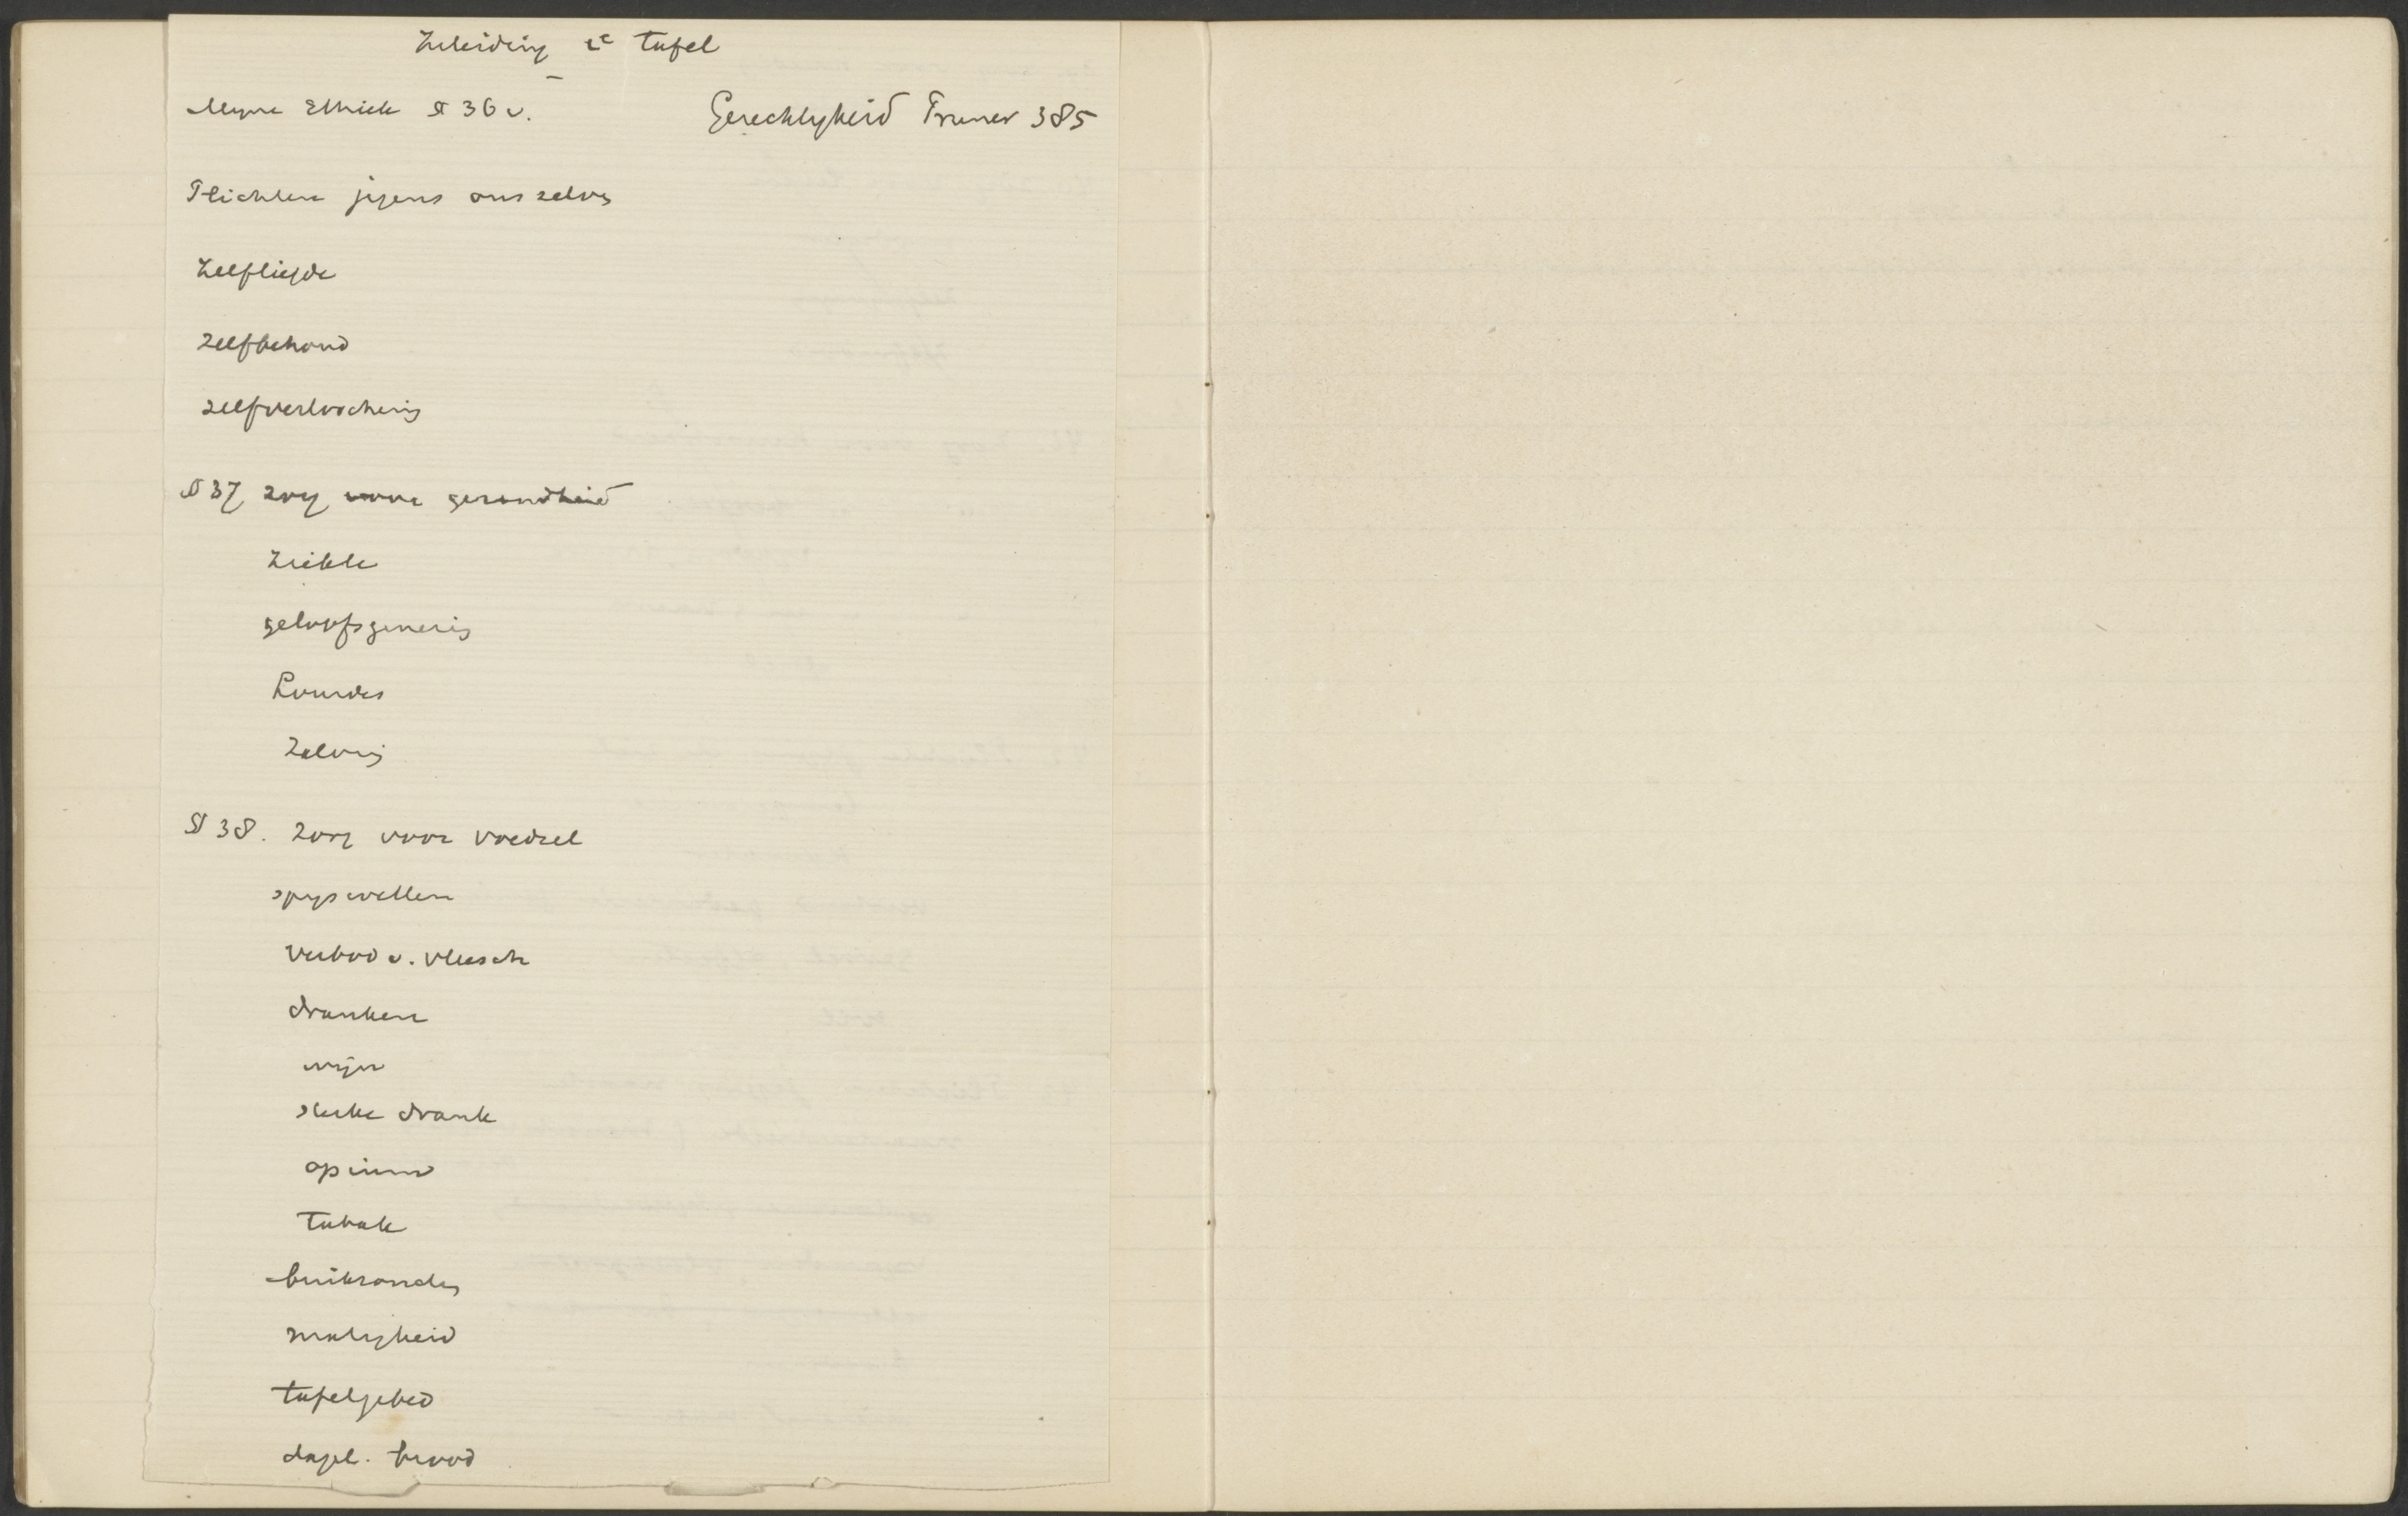 Inleiding 2e tafel
Myne Ethiek § 36 v. Gerechtigheid Frances 385
Plichten jegens ons zelve
Zelfliefde
zelfbehoud
zelfverloochening
§ 37 zorg voor gezondheid
Ziekte
geloofsgenezing
Lourdes
Zalving
§ 38. Zorg voor voedsel
spijswetten
verbod v. vleesch
dranken
wijn
sterke drank
opium
Tabak
braszonden
matigheid
tafelgebed
dagel. brood